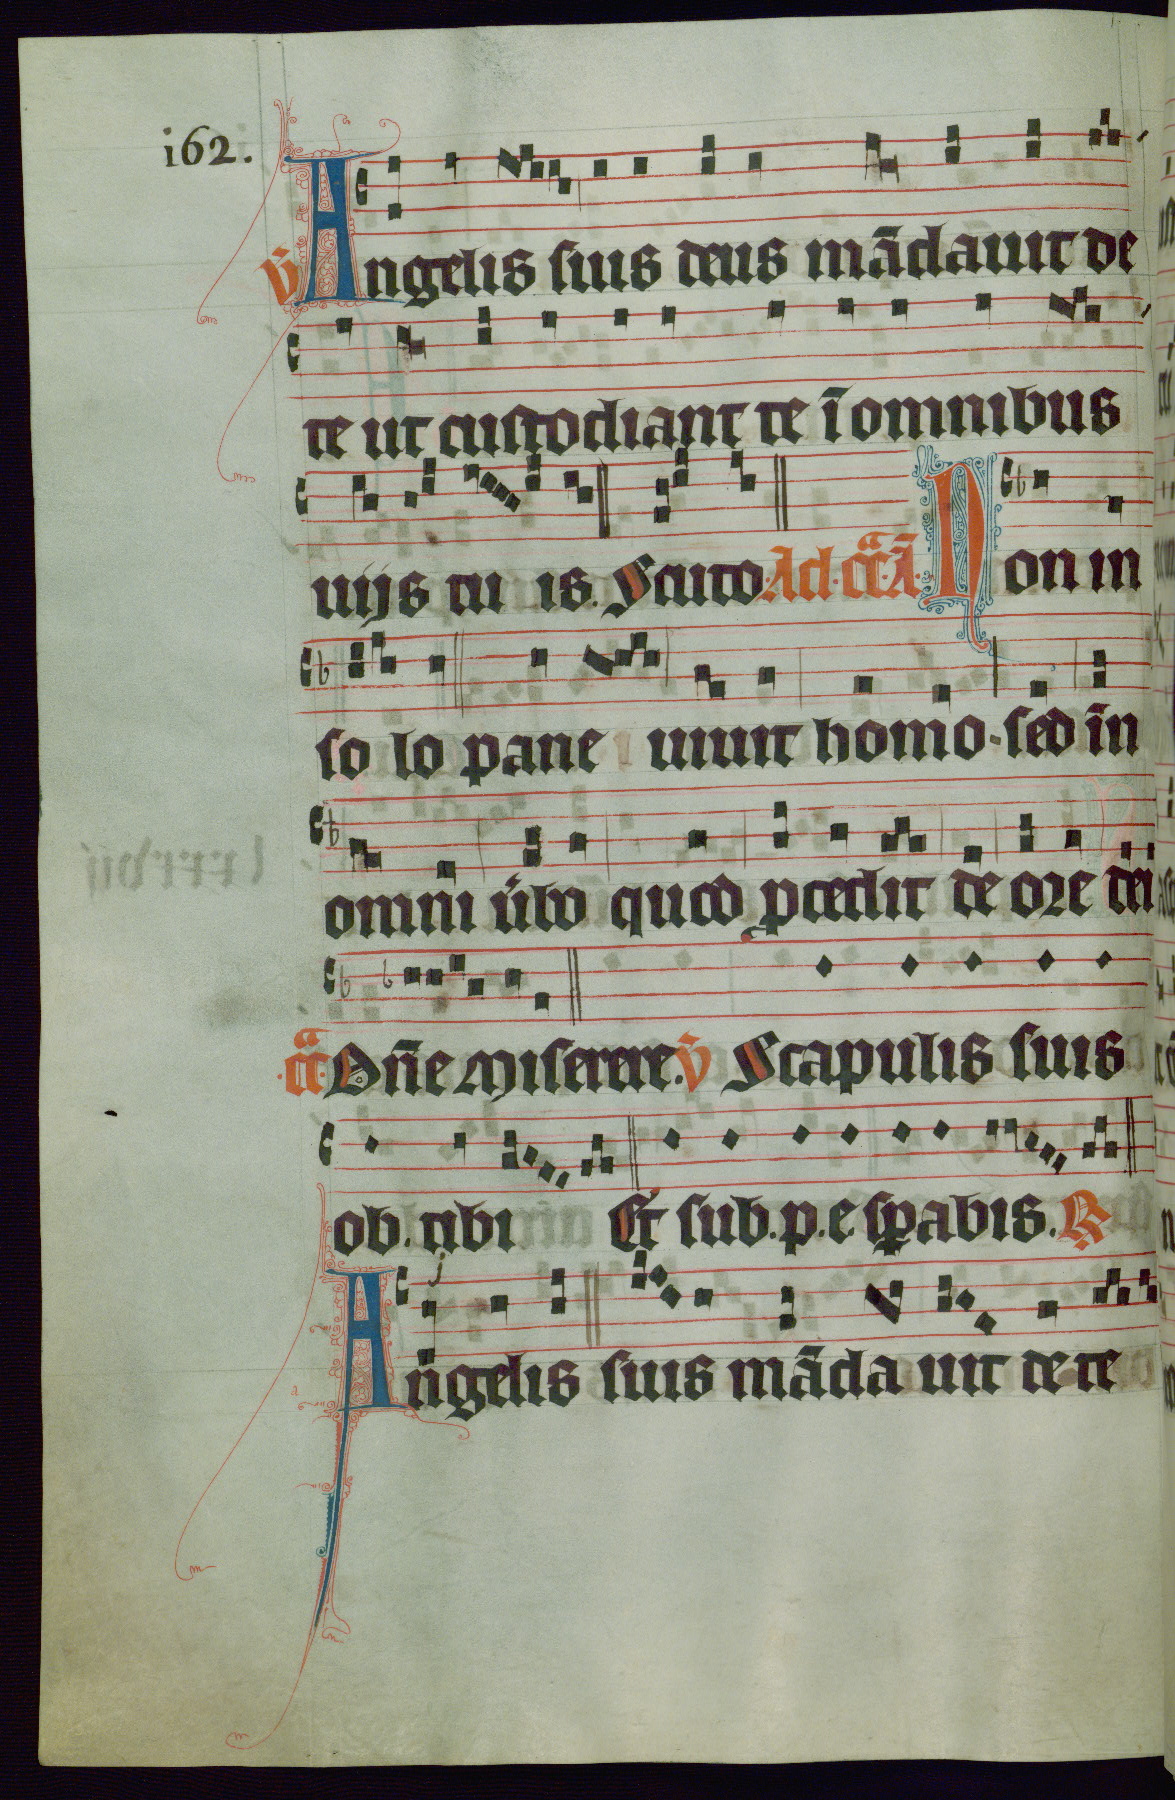 i62.
v̄ Angelis suis deus mādauit de
te ut custodiant te ī omnibus
uijs tu is. Scuto. Ad. cc̄. ā. Non in
so lo pane uiuit homo. sed īn
omni u̅bo quod ꝓcedit de ore dei
cc̄ Dn̄e miserere. v̄ Scapulis suis
ob. tibi Et sub. p. e. sꝑabis. ℟
Angelis suis māda uit de te